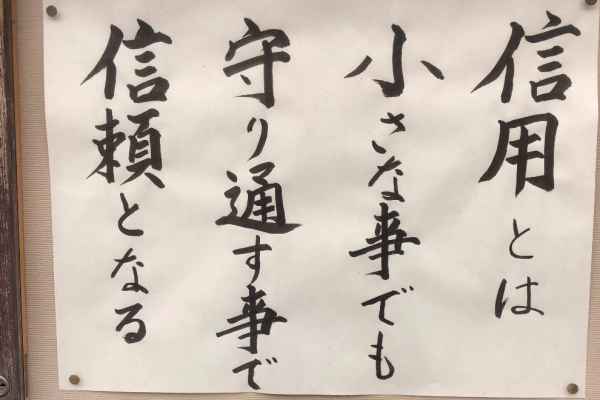 信用とは
小さな事でも
守り通す事で
信頼となる